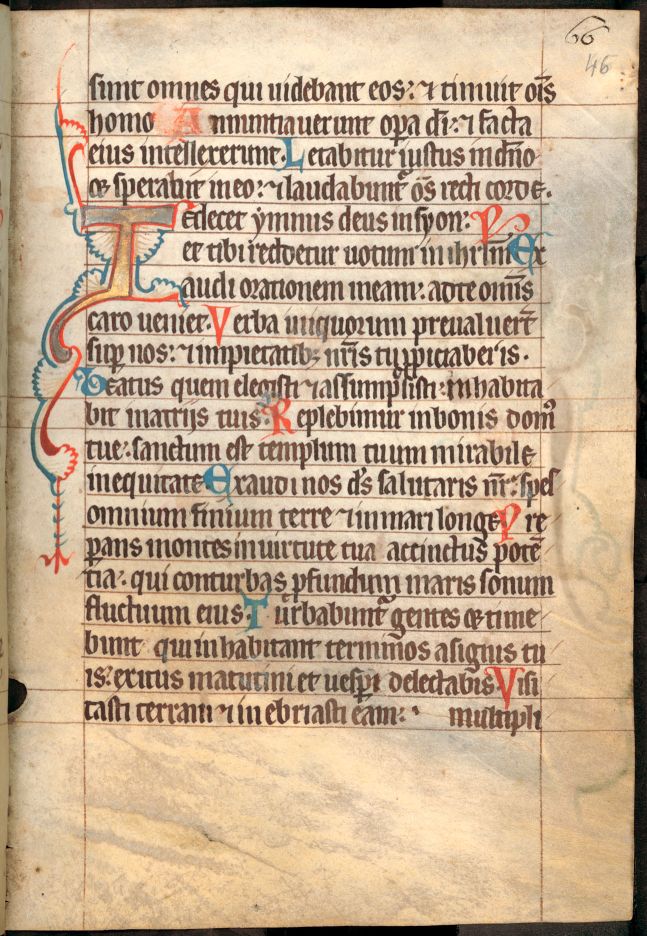 66
46
sunt omnes qui uidebant eos: ⁊ timuit oīs
homo Annuntiauerunt opa d̄i: ⁊ facta
eius intellexerunt. Letabitur iustus in dn̄o
& sperabit in eo: ⁊ laudabunt᷑ oēs recti corde.
Te decet ymnus deus in syon:
et tibi reddetur uotum in ihrlm̄ Ex
audi orationem meam: ad te omīs
caro ueniet. Verba iniquorum preualuert̄
sup nos: ⁊ impietatib; nr̄is tu ꝓpiciaberis.
Beatus quem elegisti ⁊ assumpsisti: inhabita
bit in atrijs tuis. Replebimur in bonis dom⁹
tue: sanctum est templum tuum mirabile
in equitate Exaudi nos d̄s salutaris nr̄: spes
omnium finium terre ⁊ in mari longe Pre
parans montes in uirtute tua accinctus potē
tia: qui conturbas ꝓfundum maris sonum
fluctuum eius. Turbabunt᷑ gentes & time
bunt qui inhabitant terminos a signis tu
is: exitus matutini et uespi delectabis. Visi
tasti terram ⁊ inebriasti eam: multipli